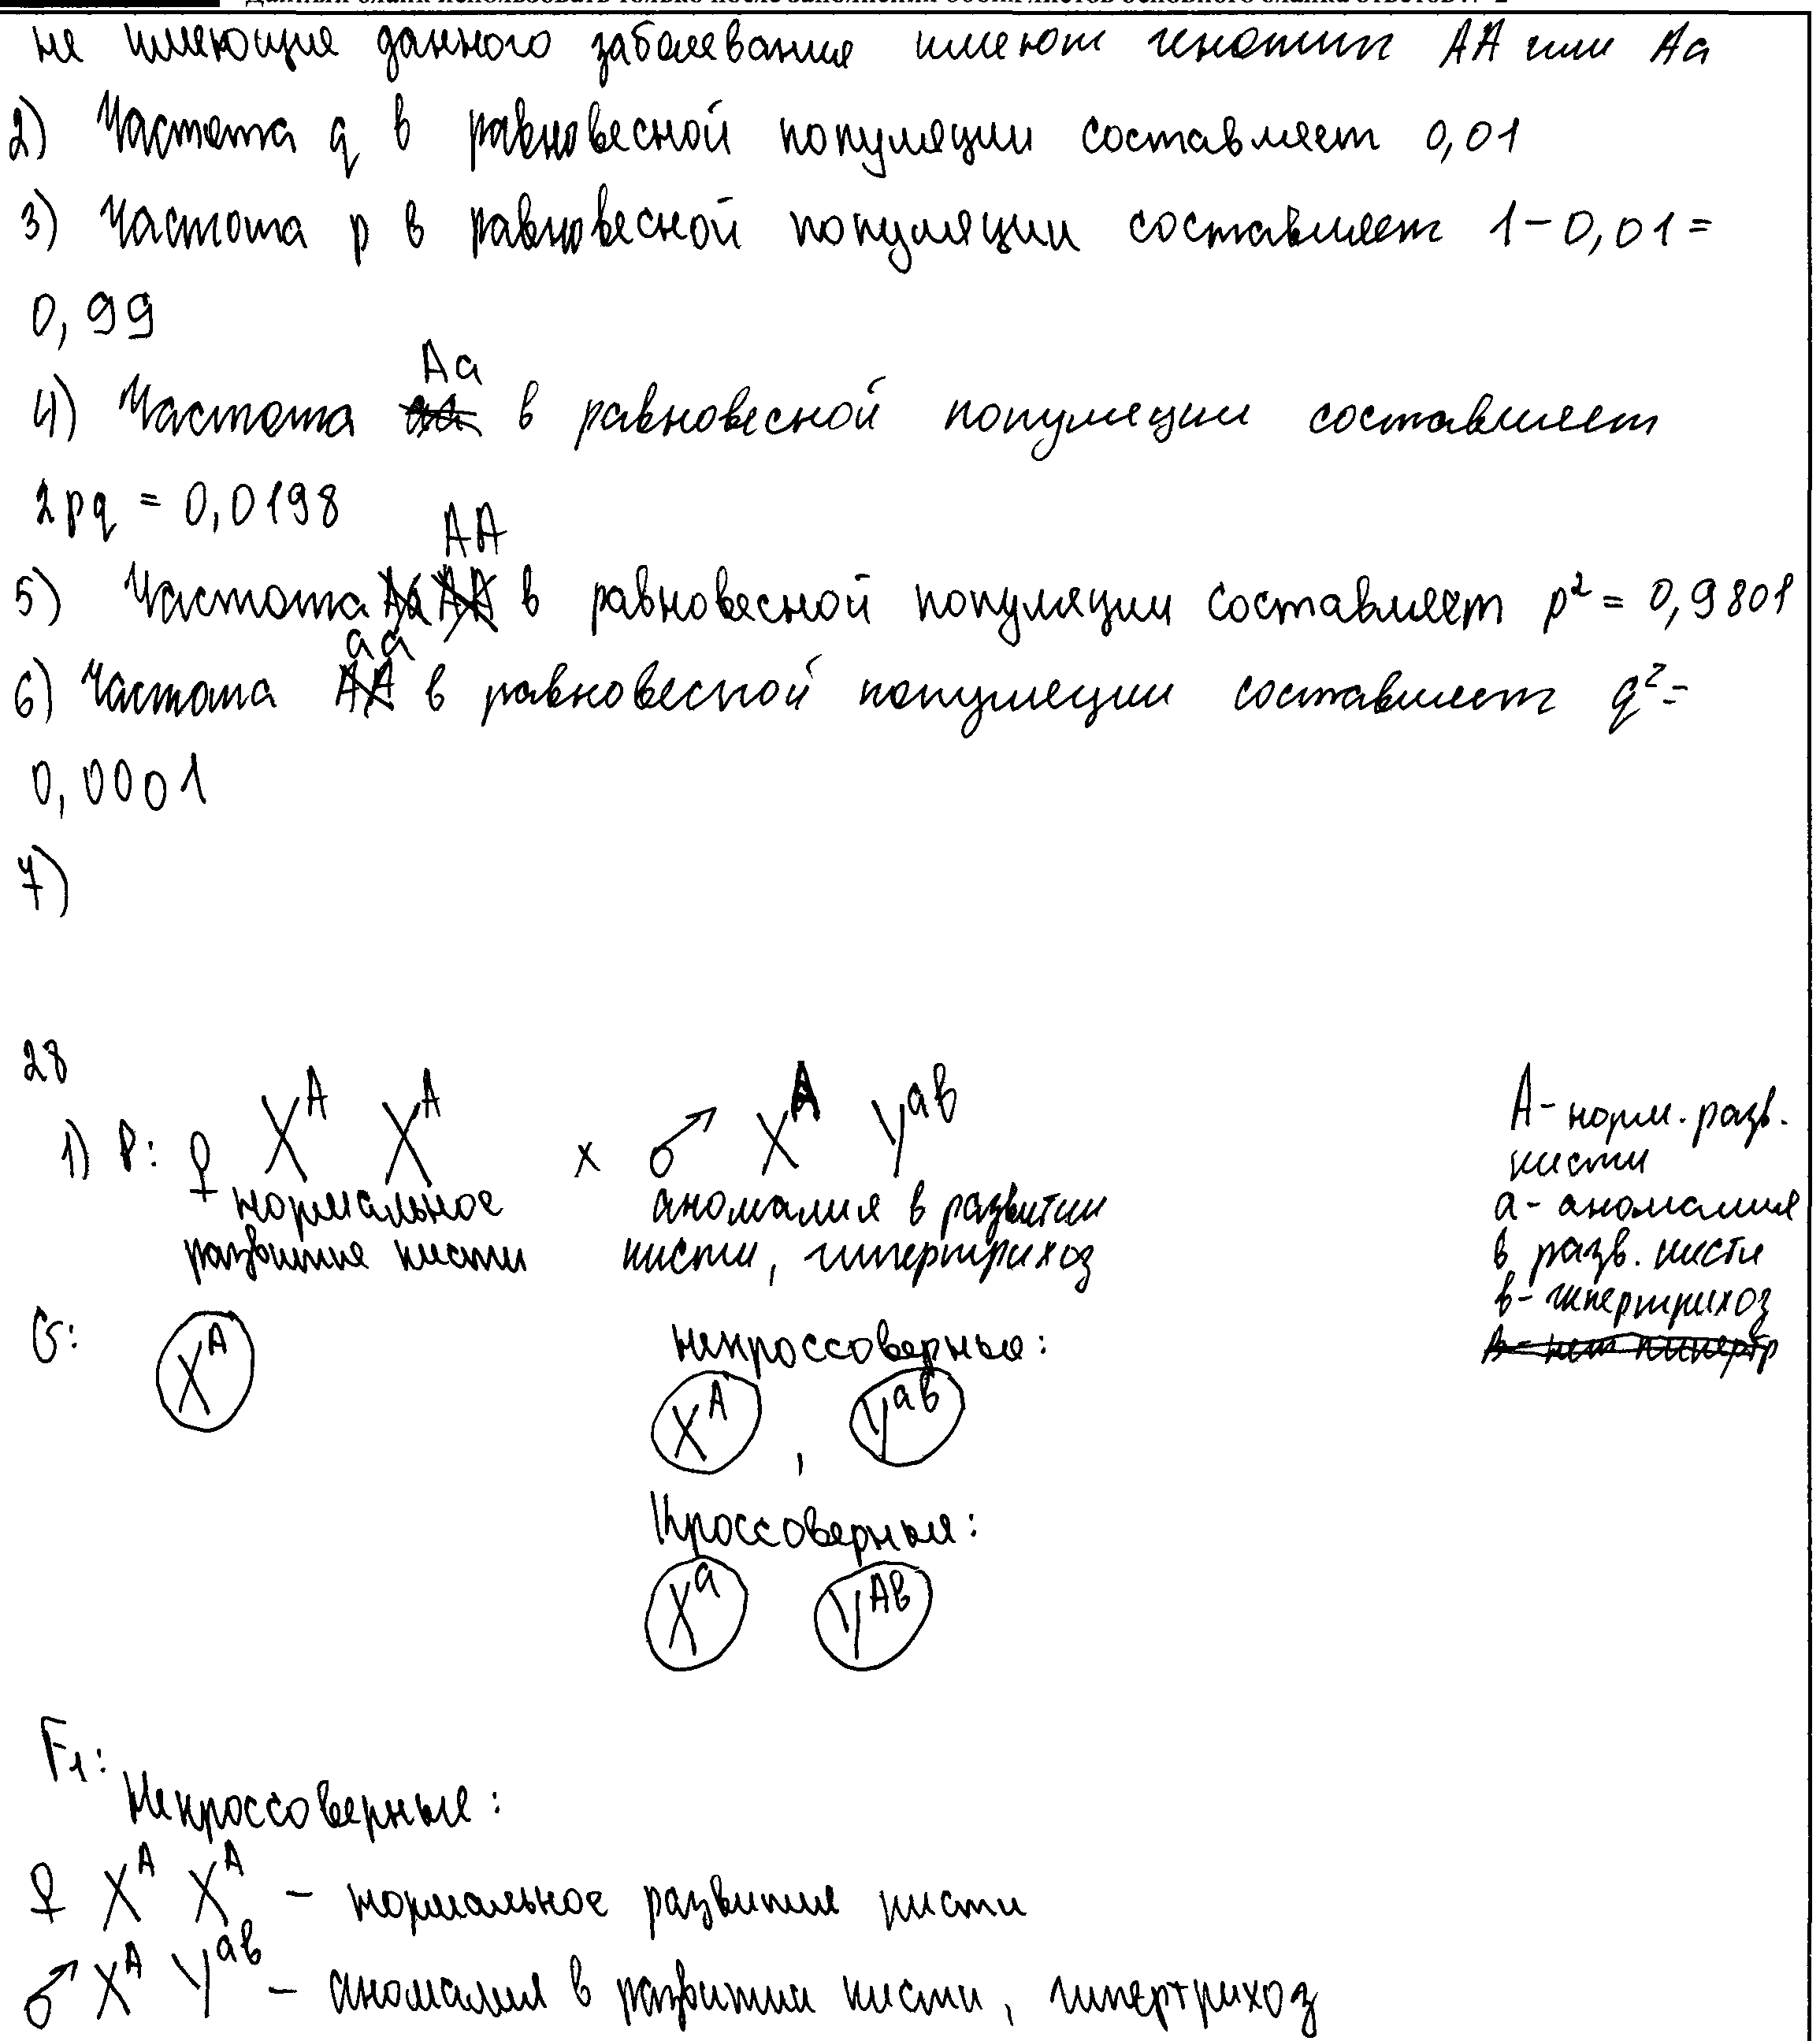 не имеющие данного заболевания имеют генотип АА или Аа
2) Частота q в равновесной популяции составляет 0,01
3) Частота p в равновесной популяции составляет 1-0,01=
0,99
Аа
4) Частота аа в равновесной популяции составляет
2pq = 0,0198
АА
5) Частота Аа АА в равновесной популяции составляет p² = 0,9801
аа
6) Частота АА в равновесной популяции составляет q² =
0,0001
7)
28
1) P: ♀ X^A X^A x ♂ X^A Y^ав
нормальное развитие кисти
аномалия в развитии кисти, гипертрихоз
А - норм. разв.
кисти
а - аномалия
в разв. кисти
в - гипертрихоз
В - нет гипертр
G: X^A
некроссоверные:
X^A , Y^ав
Кроссоверные:
X^а Y^Ав
F1:
Некроссоверные:
♀ X^A X^A - нормальное развитие кисти
♂ X^A Y^ав - аномалия в развитии кисти, гипертрихоз